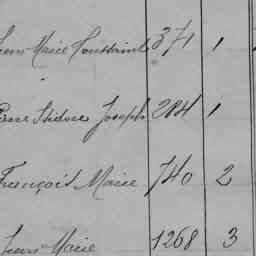 Jean Marie Toussaint 371 1
Pierre Isidore Joseph 284 1
François Marie 740 2
Jean Marie 1268 3